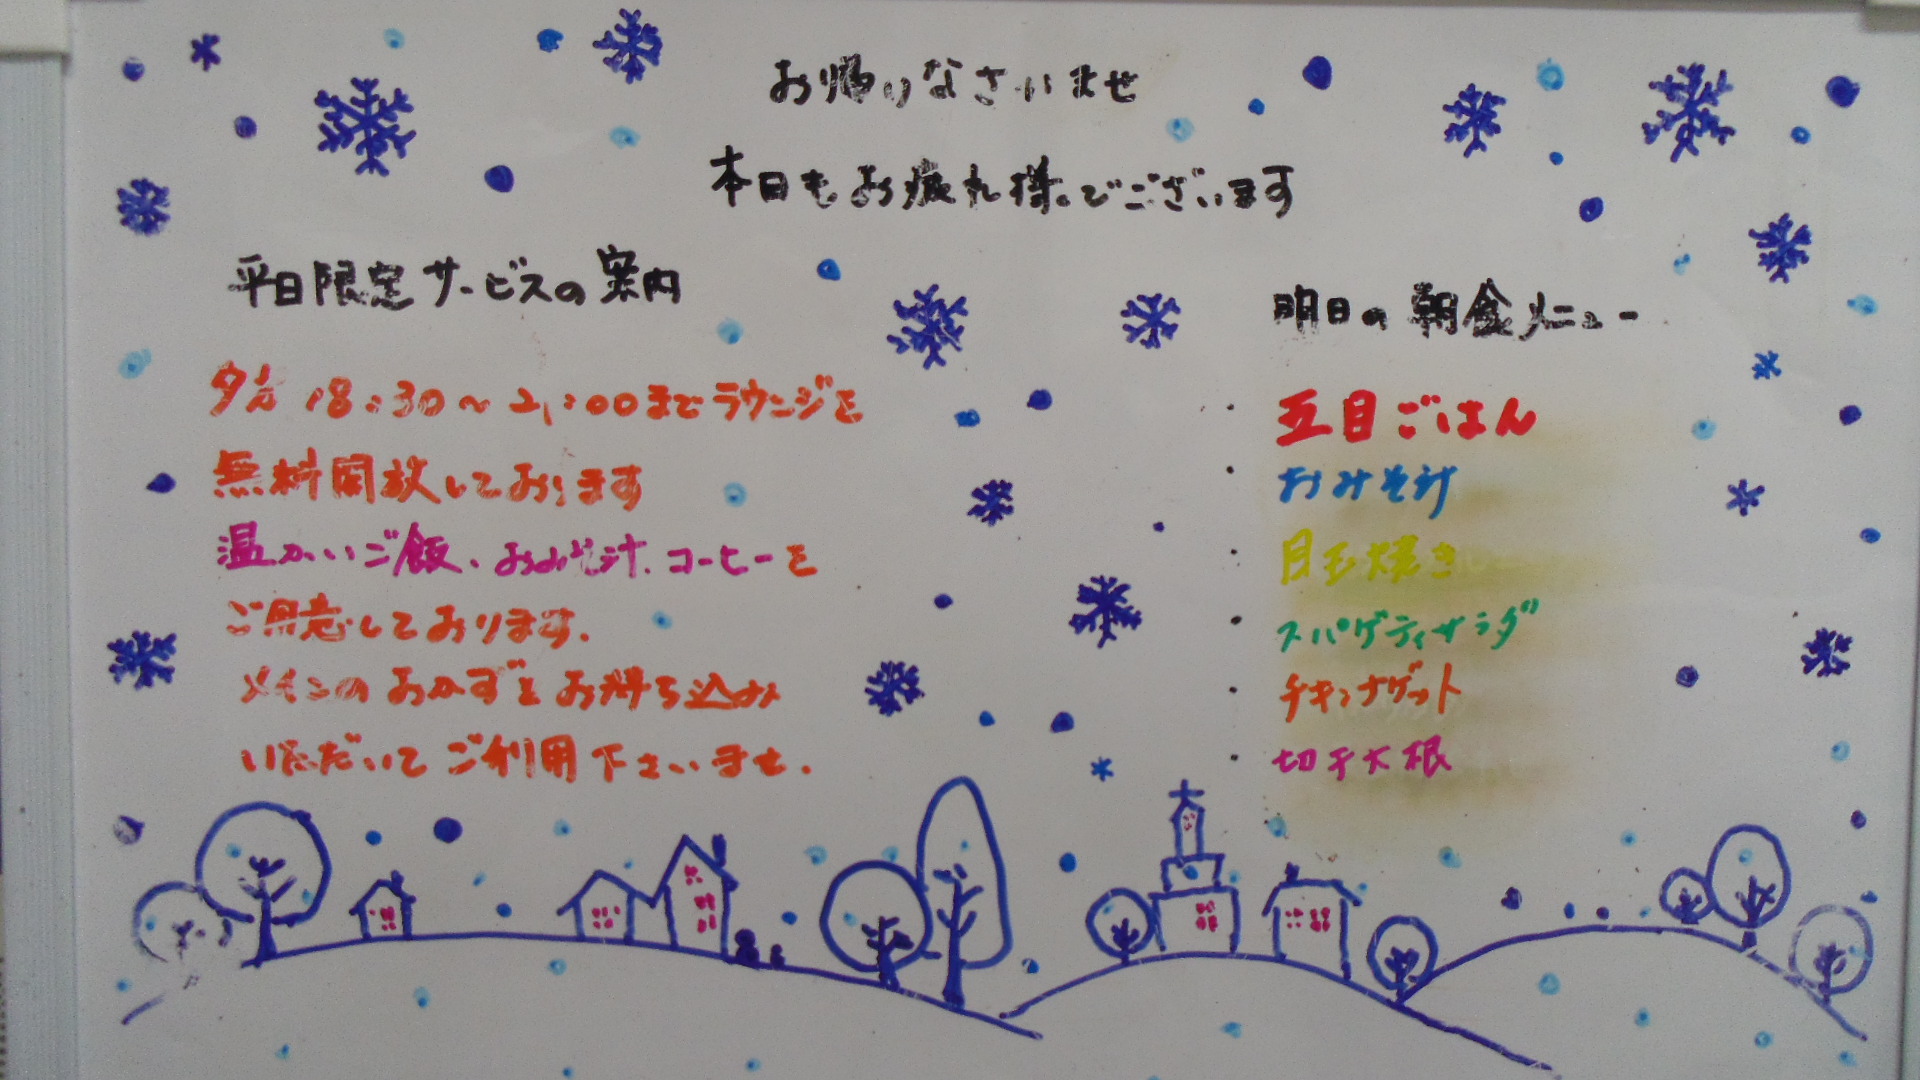 お帰りなさいませ
本日もお疲れ様でございます
平日限定サービスの案内
夕方 18:30～21:00までラウンジを
無料開放しております
温かいご飯、おみそ汁、コーヒーを
ご用意しております.
メインのおかずをお持ち込み
いただいてご利用下さいませ.
明日の朝食メニュー
・五目ごはん
・おみそ汁
・目玉焼き
・スパゲティサラダ
・チキンナゲット
・切干大根